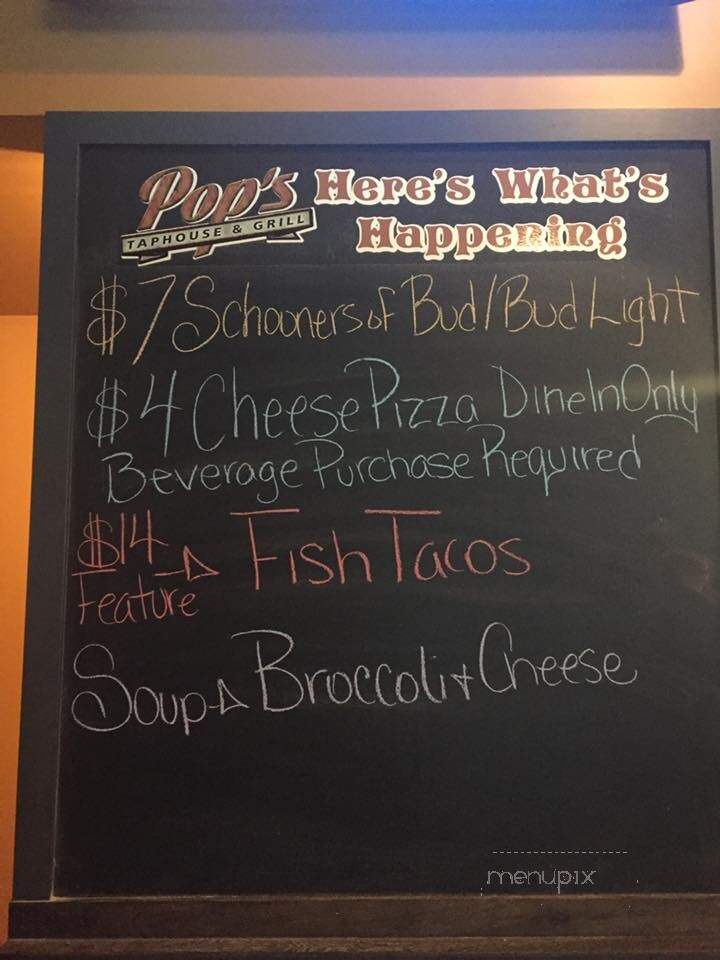 Pop's
TAPHOUSE & GRILL
Here's What's
Happening
$7 Schooners of Bud/Bud Light
$4 Cheese Pizza Dine In Only
Beverage Purchase Required
$14
Feature → Fish Tacos
Soup → Broccoli + Cheese
menupix